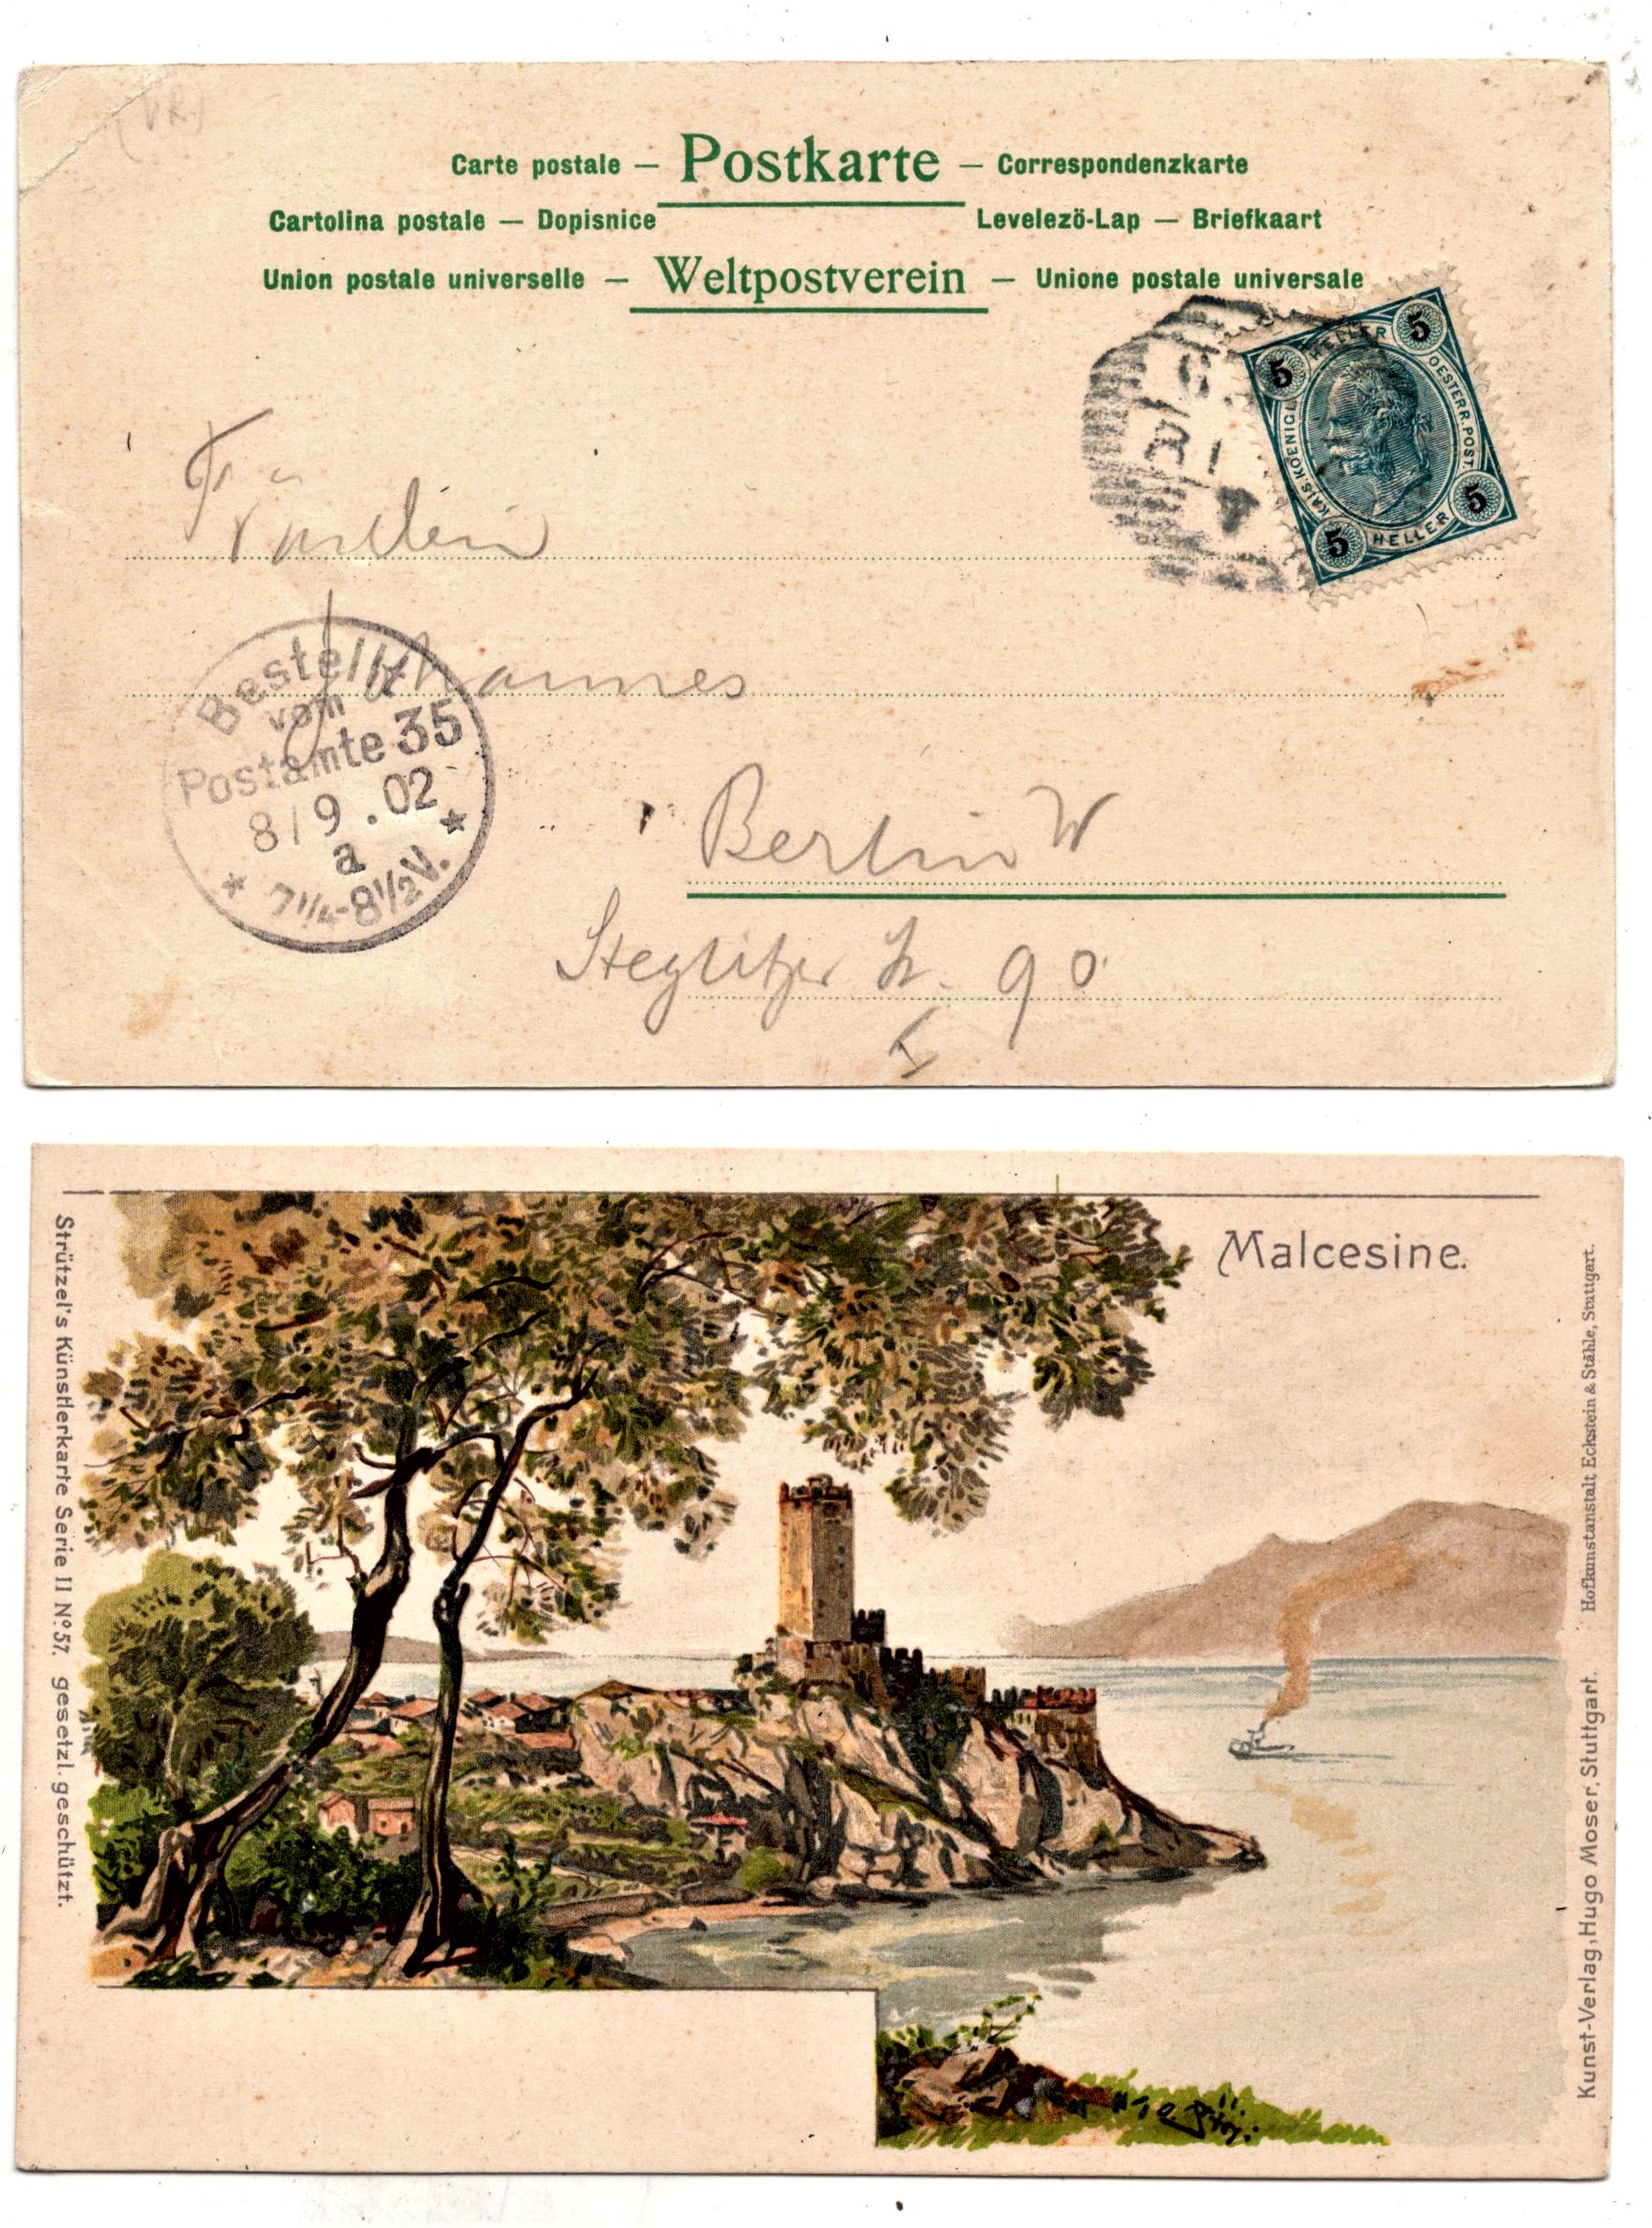 (VR)
Carte postale — Postkarte — Correspondenzkarte
Cartolina postale — Dopisnice Levelezö-Lap — Briefkaart
Union postale universelle — Weltpostverein — Unione postale universale
5 HELLER 5
KAIS. KOENIGL. OESTERR. POST.
5 HELLER 5
Fräulein
Bestellt
vom
Postamte 35
8/9.02
a
* 7 1/4-8 1/2 V. *
Berlin W
Steglitzer St. 90
I
Malcesine.
Strützel's Künstlerkarte Serie II No. 57. gesetzl. geschützt.
Hofkunstanstalt Eckstein & Stähle, Stuttgart.
Kunst-Verlag, Hugo Moser, Stuttgart.